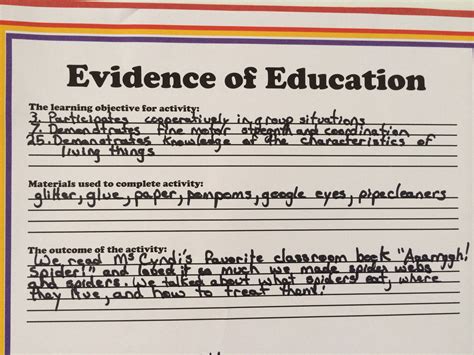 Evidence of Education
The learning objective for activity:
3. Participates cooperatively in group situations
7. Demonstrates fine motor strength and coordination
25. Demonstrates knowledge of the characteristics of
living things
Materials used to complete activity:
glitter, glue, paper, pompoms, google eyes, pipecleaners
The outcome of the activity:
We read Ms Cyndi's favorite classroom book "Aaarrgghh!
Spider!" and loved it so much we made spider webs
and spiders. We talked about what spiders eat, where
they live, and how to treat them!